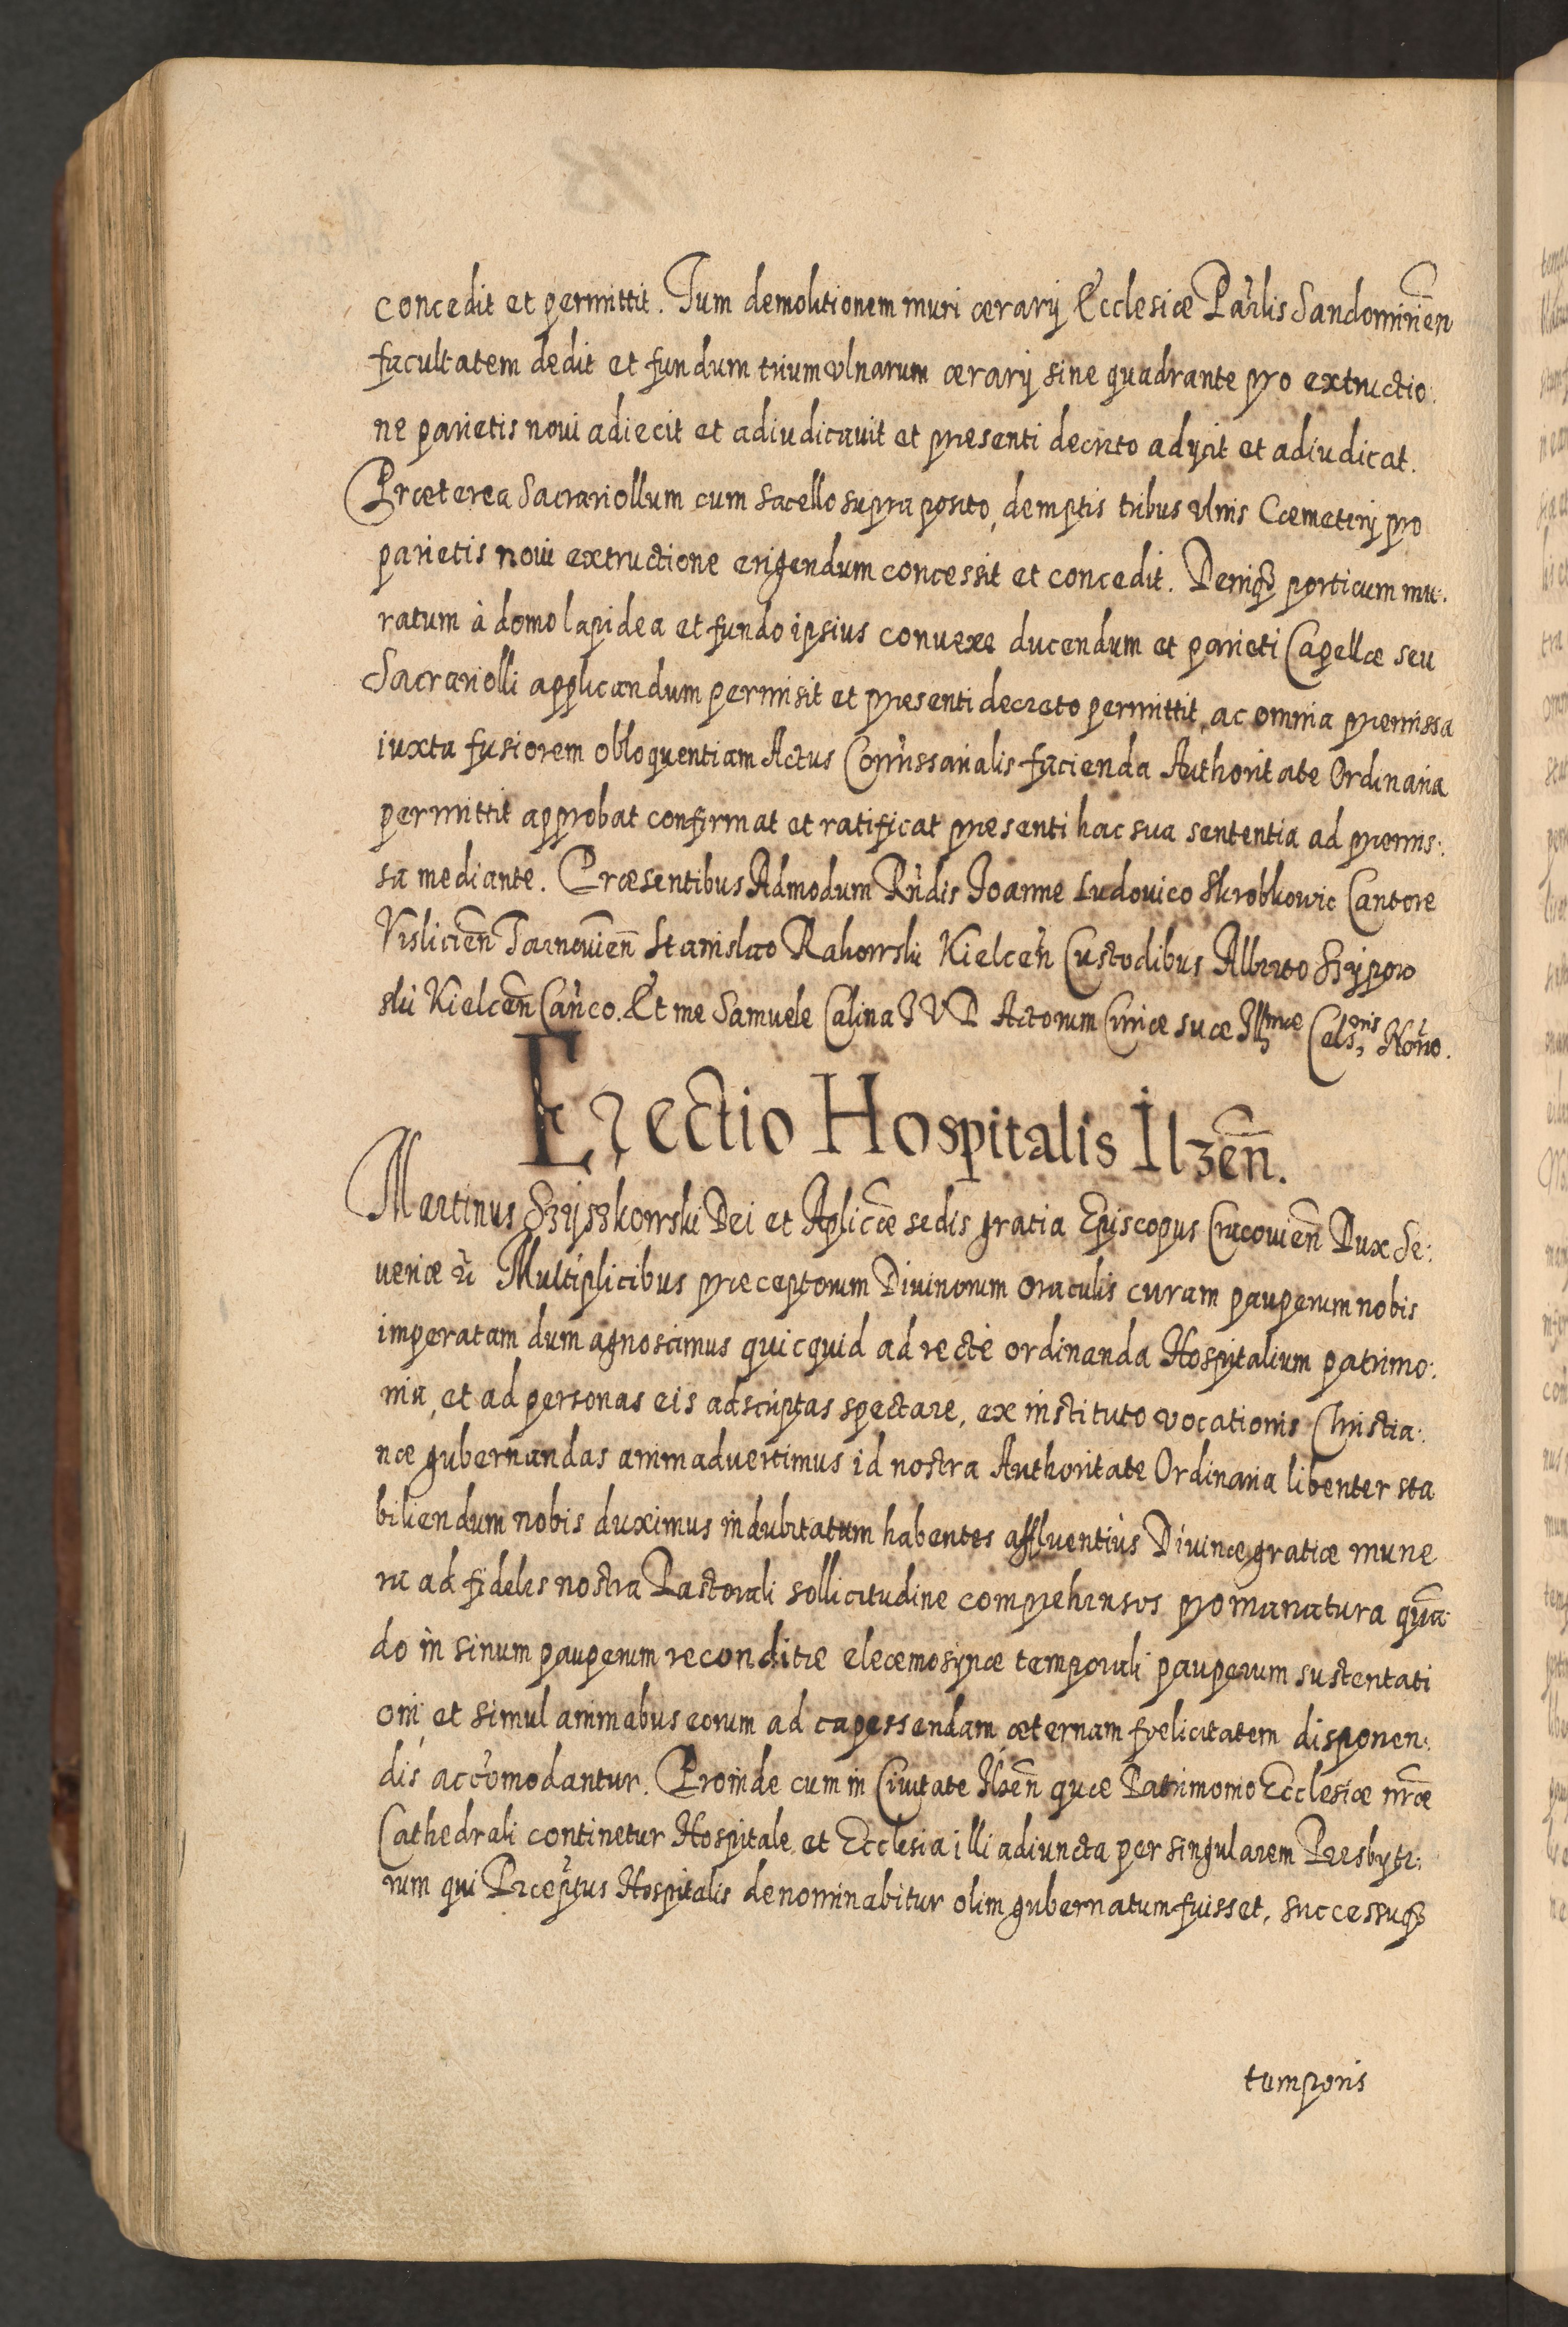 concedit et permittit. Tum demolitionem muri ærarij Ecclesiæ Parlis Sandomirien
facultatem dedit et fundum trium vlnarum ærarij sine quadrante pro extructio:
ne parietis noui adiecit et adiudicauit et presenti decreto adijcit et adiudicat.
Præterea Sacrariollum cum sacello supra posito, demptis tribus vlnis Cœmeterij pro
parietis noui extructione erigendum concessit et concedit. Deniq3 porticum mu:
ratum à domo lapidea et fundo ipsius conuexe ducendum et parieti Capellæ seu
Sacrariolli applicandum permisit et presenti decreto permittit, ac omnia premissa
iuxta fusiorem obloquentiam Actus Comissarialis facienda Authoritate Ordinaria
permittit approbat confirmat et ratificat presenti hac sua sententia ad premis:
sa mediante. Præsentibus Admodum Rndis Joanne Ludouico Skrobkowic Cantore
Vislicien Tarnouien Stanislao Rakowski Kielcen Custodibus Alberto Szypow
ski Kielcen Canco. Et me Samuele Calina I V D Actorum Criæ suæ Illmæ Cels,onis Norio.
Erectio Hospitalis Ilzen.
Martinus Szyszkowski Dei et Aplicæ sedis gratia Episcopus Cracouien Dux Se:
ueriæ &c Multiplicibus preceptorum Diuinorum oraculis curam pauperum nobis
imperatam dum agnoscimus quicquid ad rectè ordinanda Hospitalium patrimo:
nia, et ad personas eis adscriptas spectare, ex instituto vocationis Christia:
næ gubernandas animaduertimus id nostra Authoritate Ordinaria libenter sta
biliendum nobis duximus indubitatum habentes affluentiùs Diuinæ gratiæ mune
ra ad fideles nostra Pastorali sollicitudine comprehensos promanatura qua
do in sinum pauperum reconditæ eleæmosijnæ temporali pauperum sustentati
oni, et simul animabus eorum ad capessendam æternam fœlicitatem disponen:
dis accomodantur. Proinde cum in Ciuitate Ilzen quæ Patrimonio Ecclesiæ nræ
Cathedrali continetur Hospitale et Ecclesia illi adiuncta per singularem Presbyte:
rum qui Præptus Hospitalis denominabitur olim gubernatum fuisset, successuq3
temporis